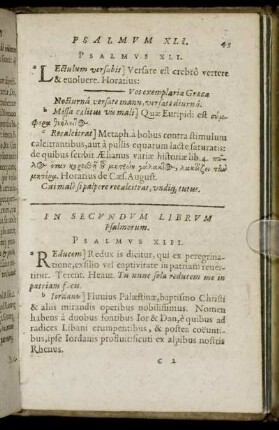 PSALMVM XLI. 43
PSALMVS XLI.
a LEctulum versabis] Versare est crebrò vertere
& euoluere. Horatius:
Vos exemplaria Græca
Nocturnâ versate manu, versate diurnâ.
b Missa cælitus vu mali] Quæ Euripidi est
c Recalcitras] Metaph. à bobus contra stimulum
calcitrantibus, aut à pullis equarum lacte saturatis:
de quibus scribit Ælianus variæ historiæ lib. 4.
Horatius de Cæs. August.
Cui malè si palpere recalcitrat, undiq; tutus.
IN SECVNDVM LIBRVM
Psalmorum.
PSALMVS XLII.
a REducem] Redux is dicitur, qui ex peregrina-
tione, exsilio vel captiuitate in patriam reuer-
titur. Terent. Heaut. Tu nunc sola reducem me in
patriam facis.
b Iordanis] Fluuius Palæstinæ, baptismo Christi
& aliis mirandis operibus nobilissimus. Nomen
habens à duobus fontibus Ior & Dan, è quibus ad
radices Libani erumpentibus, & postea coëunti-
bus, ipse Iordanis profluit: sicuti ex alpibus nostris
Rhenus.
C 2